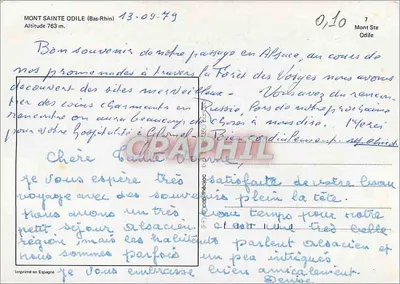 MONT SAINTE ODILE (Bas-Rhin)
Altitude 763 m.
13-09-79
0,10
7
Mont Ste
Odile
Bon souvenir de notre passage en Alsace, au cours de
nos promenades à travers la Forêt des Vosges nous avons
découvert des sites merveilleux. Vous avez du rencontrer
des coins charmants en Russie, lors de notre prochaine
rencontre on aura beaucoup de choses à nous dire. Merci
pour votre hospitalité à
Bien cordialement
CPAPHIL
Chère
je vous espère très satisfaite de votre beau
voyage avec des souvenirs plein la tête.
Nous avons un très beau temps pour notre
petit séjour alsacien c'est une très belle
région, mais les habitants parlent alsacien et
nous sommes parfois un peu intrigués
je vous embrasse bien amicalement.
Denise
Imprimé en Espagne